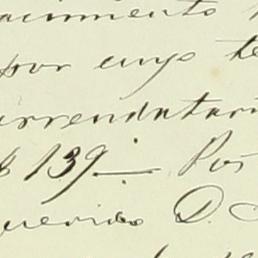 acimiento
por cuyo te
arrendatari
$ 139 — Por
querido D.